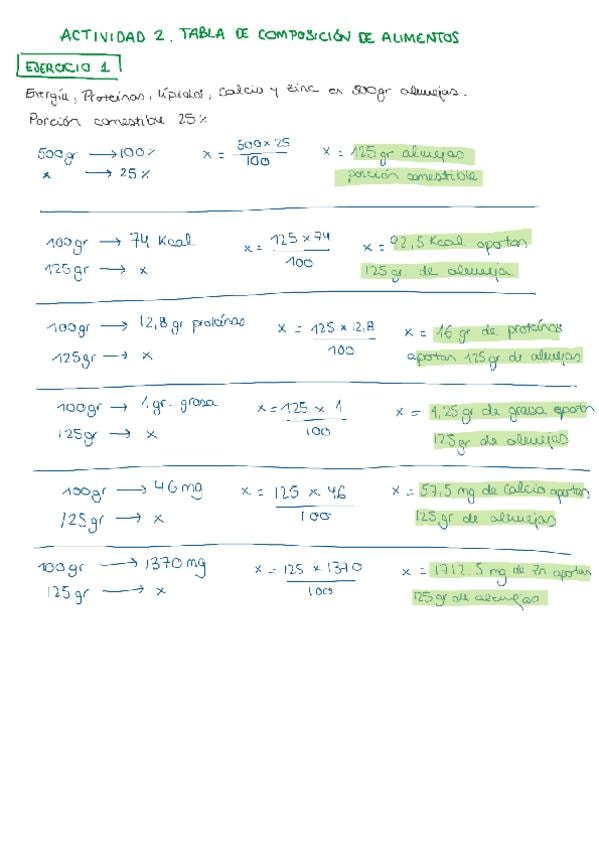 ACTIVIDAD 2. TABLA DE COMPOSICIÓN DE ALIMENTOS
EJERCICIO 1
Energía, Proteínas, Lípidos, Calcio y Zinc en 500gr almejas.
Porción comestible 25%
500gr → 100% x = 500 x 25 / 100 x = 125 gr almejas
x → 25% porción comestible
100gr → 74 Kcal x = 125 x 74 / 100 x = 92,5 Kcal aportan
125gr → x 125 gr. de almeja
100gr → 12,8 gr proteínas x = 125 x 12,8 / 100 x = 16 gr de proteínas
125gr → x aportan 125 gr. de almejas
100gr → 1 gr. grasa x = 125 x 1 / 100 x = 1,25 gr de grasa aportan
125gr → x 125 gr de almejas
100gr → 46 mg x = 125 x 46 / 100 x = 57,5 mg de Calcio aportan
125gr → x 125 gr de almejas
100gr → 1370 mg x = 125 x 1370 / 100 x = 1712.5 mg de Zn aportan
125gr → x 125 gr de almejas